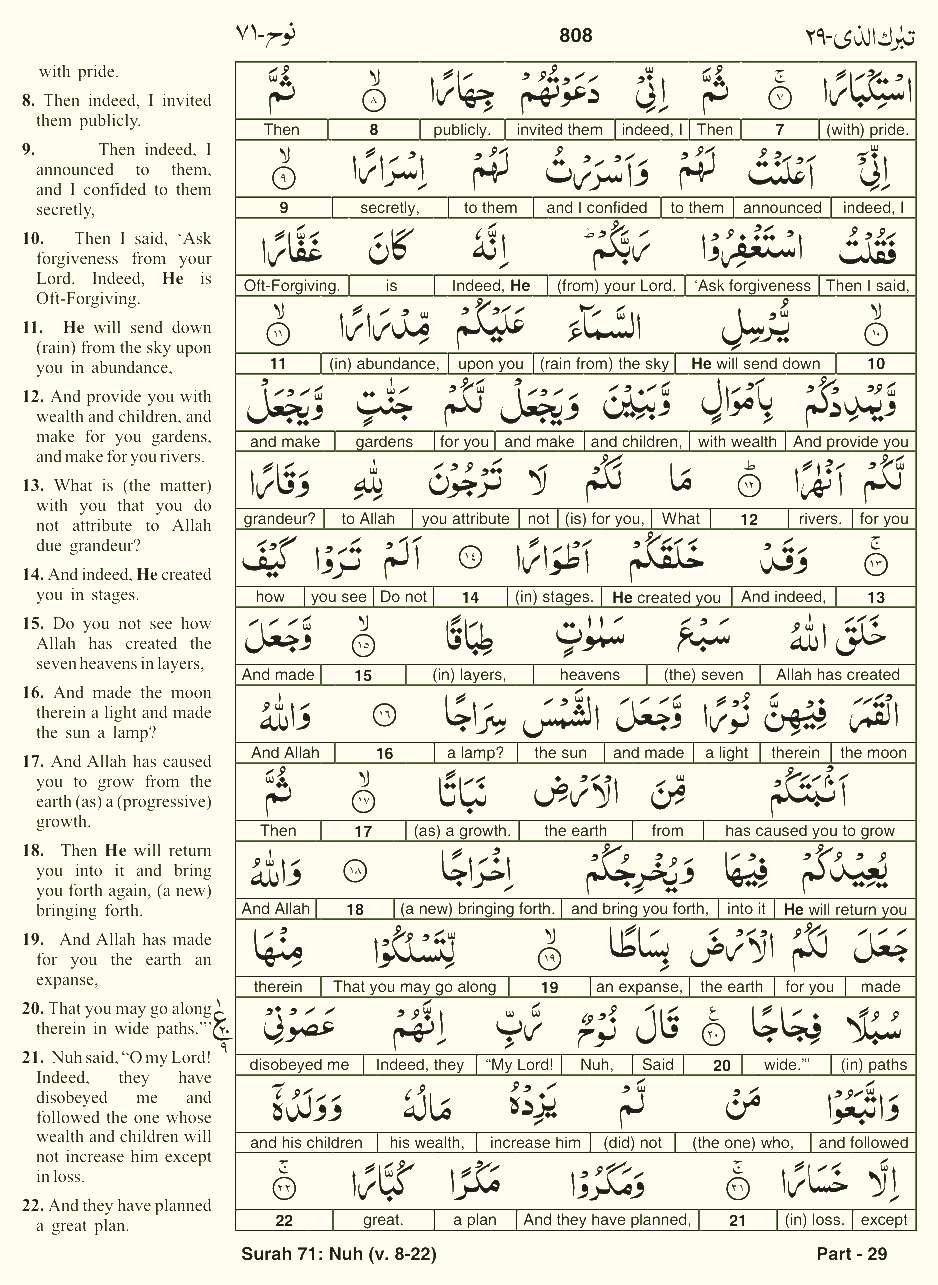 نوح-٧١ 808 تبٰرك الذى-٢٩
with pride.
8. Then indeed, I invited
them publicly.
9. Then indeed, I
announced to them,
and I confided to them
secretly,
10. Then I said, ‘Ask
forgiveness from your
Lord. Indeed, He is
Oft-Forgiving.
11. He will send down
(rain) from the sky upon
you in abundance,
12. And provide you with
wealth and children, and
make for you gardens,
and make for you rivers.
13. What is (the matter)
with you that you do
not attribute to Allah
due grandeur?
14. And indeed, He created
you in stages.
15. Do you not see how
Allah has created the
seven heavens in layers,
16. And made the moon
therein a light and made
the sun a lamp?
17. And Allah has caused
you to grow from the
earth (as) a (progressive)
growth.
18. Then He will return
you into it and bring
you forth again, (a new)
bringing forth.
19. And Allah has made
for you the earth an
expanse,
20. That you may go along
therein in wide paths.’”
21. Nuh said, “O my Lord!
Indeed, they have
disobeyed me and
followed the one whose
wealth and children will
not increase him except
in loss.
22. And they have planned
a great plan.
اسْتِكْبَارًا ۚ ٧ ثُمَّ اِنِّىْ دَعَوْتُهُمْ جِهَارًا ۙ ٨ ثُمَّ
Then 8 publicly. invited them indeed, I Then 7 (with) pride.
اِنِّىْٓ اَعْلَنْتُ لَهُمْ وَاَسْرَرْتُ لَهُمْ اِسْرَارًا ۙ ٩
9 secretly, to them and I confided to them announced indeed, I
فَقُلْتُ اسْتَغْفِرُوْا رَبَّكُمْ ؕ اِنَّهٗ كَانَ غَفَّارًا
Oft-Forgiving. is Indeed, He (from) your Lord. ‘Ask forgiveness Then I said,
ۙ ١٠ يُّرْسِلِ السَّمَآءَ عَلَيْكُمْ مِّدْرَارًا ۙ ١١
11 (in) abundance, upon you (rain from) the sky He will send down 10
وَّيُمْدِدْكُمْ بِاَمْوَالٍ وَّبَنِيْنَ وَيَجْعَلْ لَّكُمْ جَنّٰتٍ وَّيَجْعَلْ
and make gardens for you and make and children, with wealth And provide you
لَّكُمْ اَنْهٰرًا ؕ ١٢ مَا لَكُمْ لَا تَرْجُوْنَ لِلّٰهِ وَقَارًا
grandeur? to Allah you attribute not (is) for you, What 12 rivers. for you
ۚ ١٣ وَقَدْ خَلَقَكُمْ اَطْوَارًا ١٤ اَلَمْ تَرَوْا كَيْفَ
how you see Do not 14 (in) stages. He created you And indeed, 13
خَلَقَ اللّٰهُ سَبْعَ سَمٰوٰتٍ طِبَاقًا ۙ ١٥ وَّجَعَلَ
And made 15 (in) layers, heavens (the) seven Allah has created
الْقَمَرَ فِيْهِنَّ نُوْرًا وَّجَعَلَ الشَّمْسَ سِرَاجًا ١٦ وَاللّٰهُ
And Allah 16 a lamp? the sun and made a light therein the moon
اَنْۢبَتَكُمْ مِّنَ الْاَرْضِ نَبَاتًا ۙ ١٧ ثُمَّ
Then 17 (as) a growth. the earth from has caused you to grow
يُعِيْدُكُمْ فِيْهَا وَيُخْرِجُكُمْ اِخْرَاجًا ١٨ وَاللّٰهُ
And Allah 18 (a new) bringing forth. and bring you forth, into it He will return you
جَعَلَ لَكُمُ الْاَرْضَ بِسَاطًا ۙ ١٩ لِّتَسْلُكُوْا مِنْهَا
therein That you may go along 19 an expanse, the earth for you made
سُبُلًا فِجَاجًا ٢٠ ع قَالَ نُوْحٌ رَّبِّ اِنَّهُمْ عَصَوْنِىْ
disobeyed me Indeed, they “My Lord! Nuh, Said 20 wide.’” (in) paths
وَاتَّبَعُوْا مَنْ لَّمْ يَزِدْهُ مَالُهٗ وَوَلَدُهٗٓ
and his children his wealth, increase him (did) not (the one) who, and followed
اِلَّا خَسَارًا ۚ ٢١ وَمَكَرُوْا مَكْرًا كُبَّارًا ۚ ٢٢
22 great. a plan And they have planned, 21 (in) loss. except
١ ع ٢٠ ٩
Surah 71: Nuh (v. 8-22) Part - 29